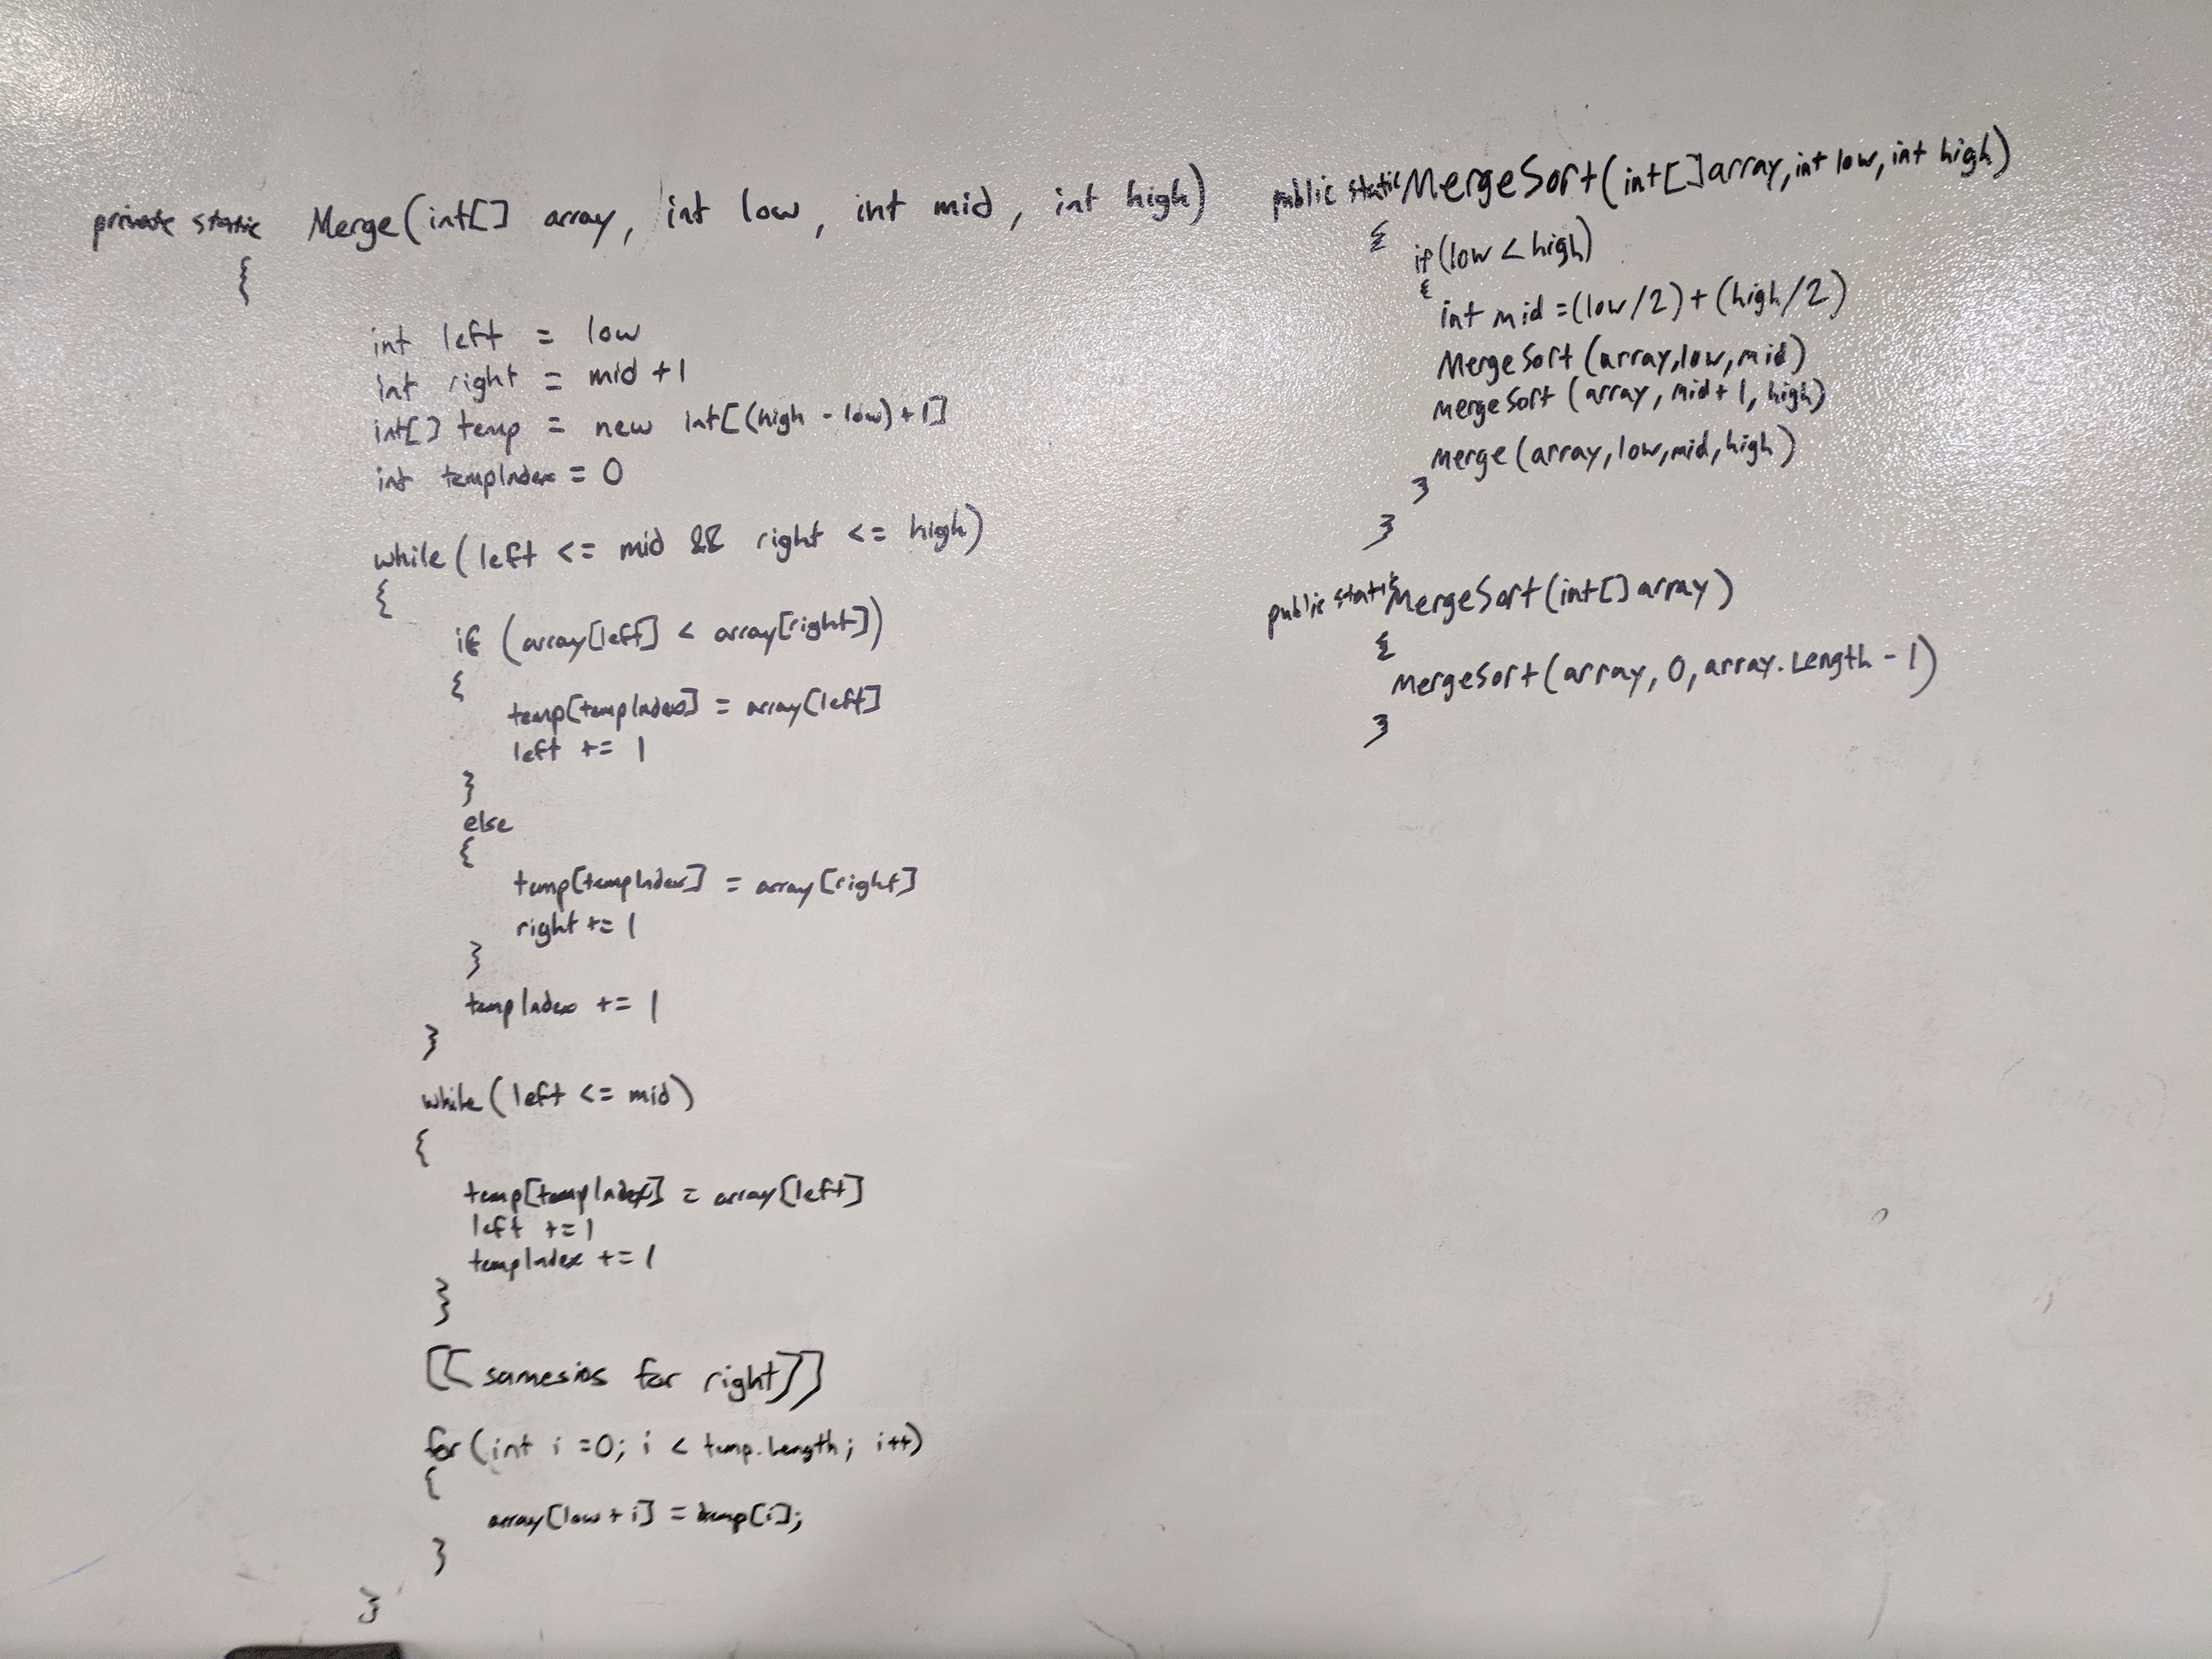 private static Merge(int[] array, int low, int mid, int high)
{
int left = low
int right = mid +1
int[] temp = new int[(high - low)+1]
int tempIndex = 0
while(left <= mid && right <= high)
{
if (array[left] < array[right])
{
temp[tempIndex] = array[left]
left += 1
}
else
{
temp[tempIndex] = array[right]
right += 1
}
tempIndex += 1
}
while(left <= mid)
{
temp[tempIndex] = array[left]
left += 1
tempIndex += 1
}
[[samesies for right]]
for(int i =0; i < temp.Length; i++)
{
array[low + i] = temp[i];
}
}
public static MergeSort(int[] array, int low, int high)
{
if(low < high)
{
int mid =(low/2)+(high/2)
MergeSort(array,low,mid)
MergeSort(array, mid+1, high)
Merge(array,low,mid,high)
}
}
public static MergeSort(int[] array)
{
MergeSort(array, 0, array.Length - 1)
}